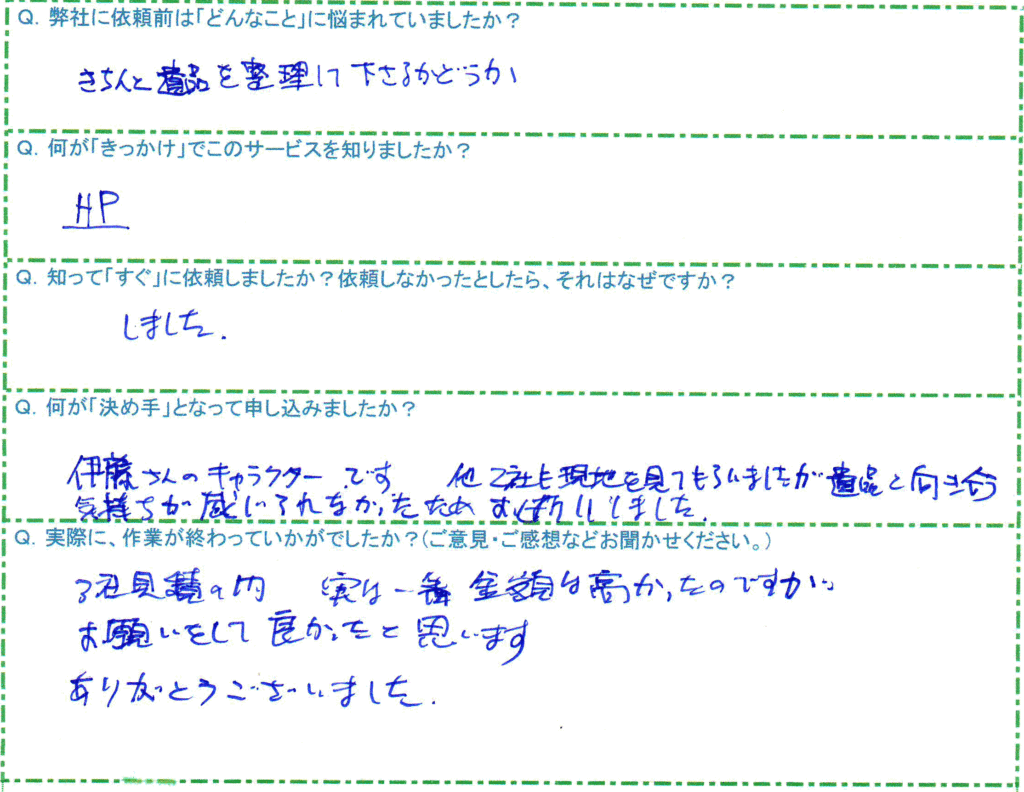 Q. 弊社に依頼前は「どんなこと」に悩まれていましたか？
きちんと遺品を整理して下さるかどうか
Q. 何が「きっかけ」でこのサービスを知りましたか？
HP
Q. 知って「すぐ」に依頼しましたか？依頼しなかったとしたら、それはなぜですか？
しました.
Q. 何が「決め手」となって申し込みましたか？
伊藤さんのキャラクターです 他2社も現地を見てもらいましたが遺品と向き合う
気持ちが感じられなかったため りしました.
Q. 実際に、作業が終わっていかがでしたか？（ご意見・ご感想などお聞かせください。）
3社見積の内 実は一番金額は高かったのですが…
お願いをして良かったと思います
ありがとうございました.